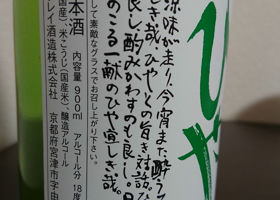 ひや
涼味が走り、今宵また酔う
き哉、ひやとの旨き対話。ひ
良し酌みかわすも良し。
のこる一献のひや宜しき哉。
して素敵なグラスでお召し上がり下さい。
本酒 内容量 900ml アルコール分 18度
国産)、米こうじ(国産米)、醸造アルコール
レイ酒造株式会社 京都府宮津市字由